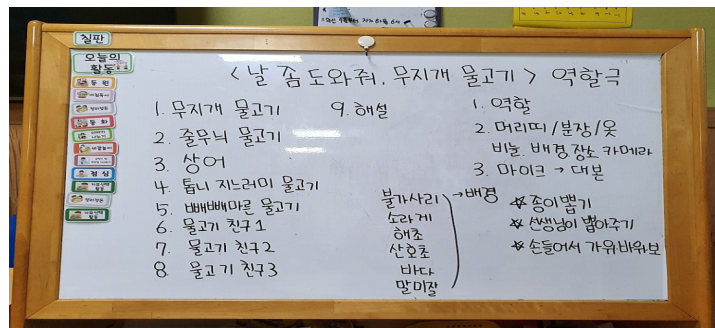 칠판
오늘의
활동
등원
동화
점심
<날 좀 도와줘, 무지개 물고기> 역할극
1. 무지개 물고기
2. 줄무늬 물고기
3. 상어
4. 톱니 지느러미 물고기
5. 빼빼마른 물고기
6. 물고기 친구1
7. 물고기 친구2
8. 물고기 친구3
9. 해설
불가사리
소라게
해초
산호초
바다
말미잘
→배경
1. 역할
2. 머리띠/분장/옷
비늘. 배경.장소 카메라
3. 마이크 → 대본
☆ 종이뽑기
☆ 선생님이 뽑아주기
☆ 손들어서 가위바위보